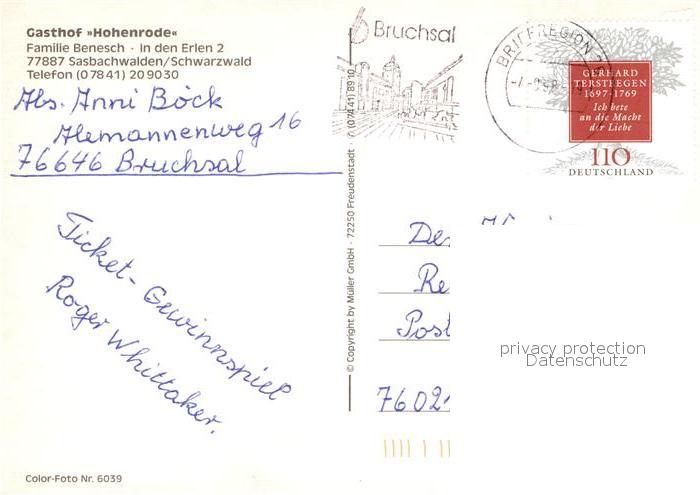 Gasthof »Hohenrode«
Familie Benesch · In den Erlen 2
77887 Sasbachwalden/Schwarzwald
Telefon (07841) 209030
Abs. Anni Böck
Alemannenweg 16
76646 Bruchsal
Ticket-Gewinnspiel
Roger Whittaker.
Color-Foto Nr. 6039
© Copyright by Müller GmbH · 72250 Freudenstadt · (07441) 8910
Bruchsal
BRIEFREGION 7
GERHARD
TERSTEEGEN
1697-1769
Ich bete
an die Macht
der Liebe
110
DEUTSCHLAND
De
Re
Post
7602
privacy protection
Datenschutz